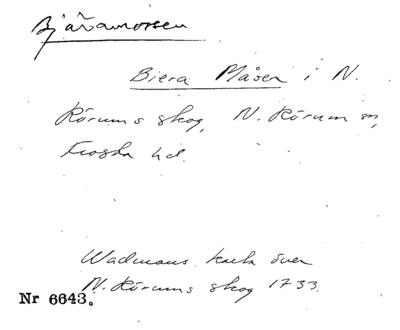 Bjäramossen
Biera Måsen i N.
Rörums skog, N. Rörum sn,
Frosta hd.
Wadmans karta över
N. Rörums skog 1733.
Nr 6643.